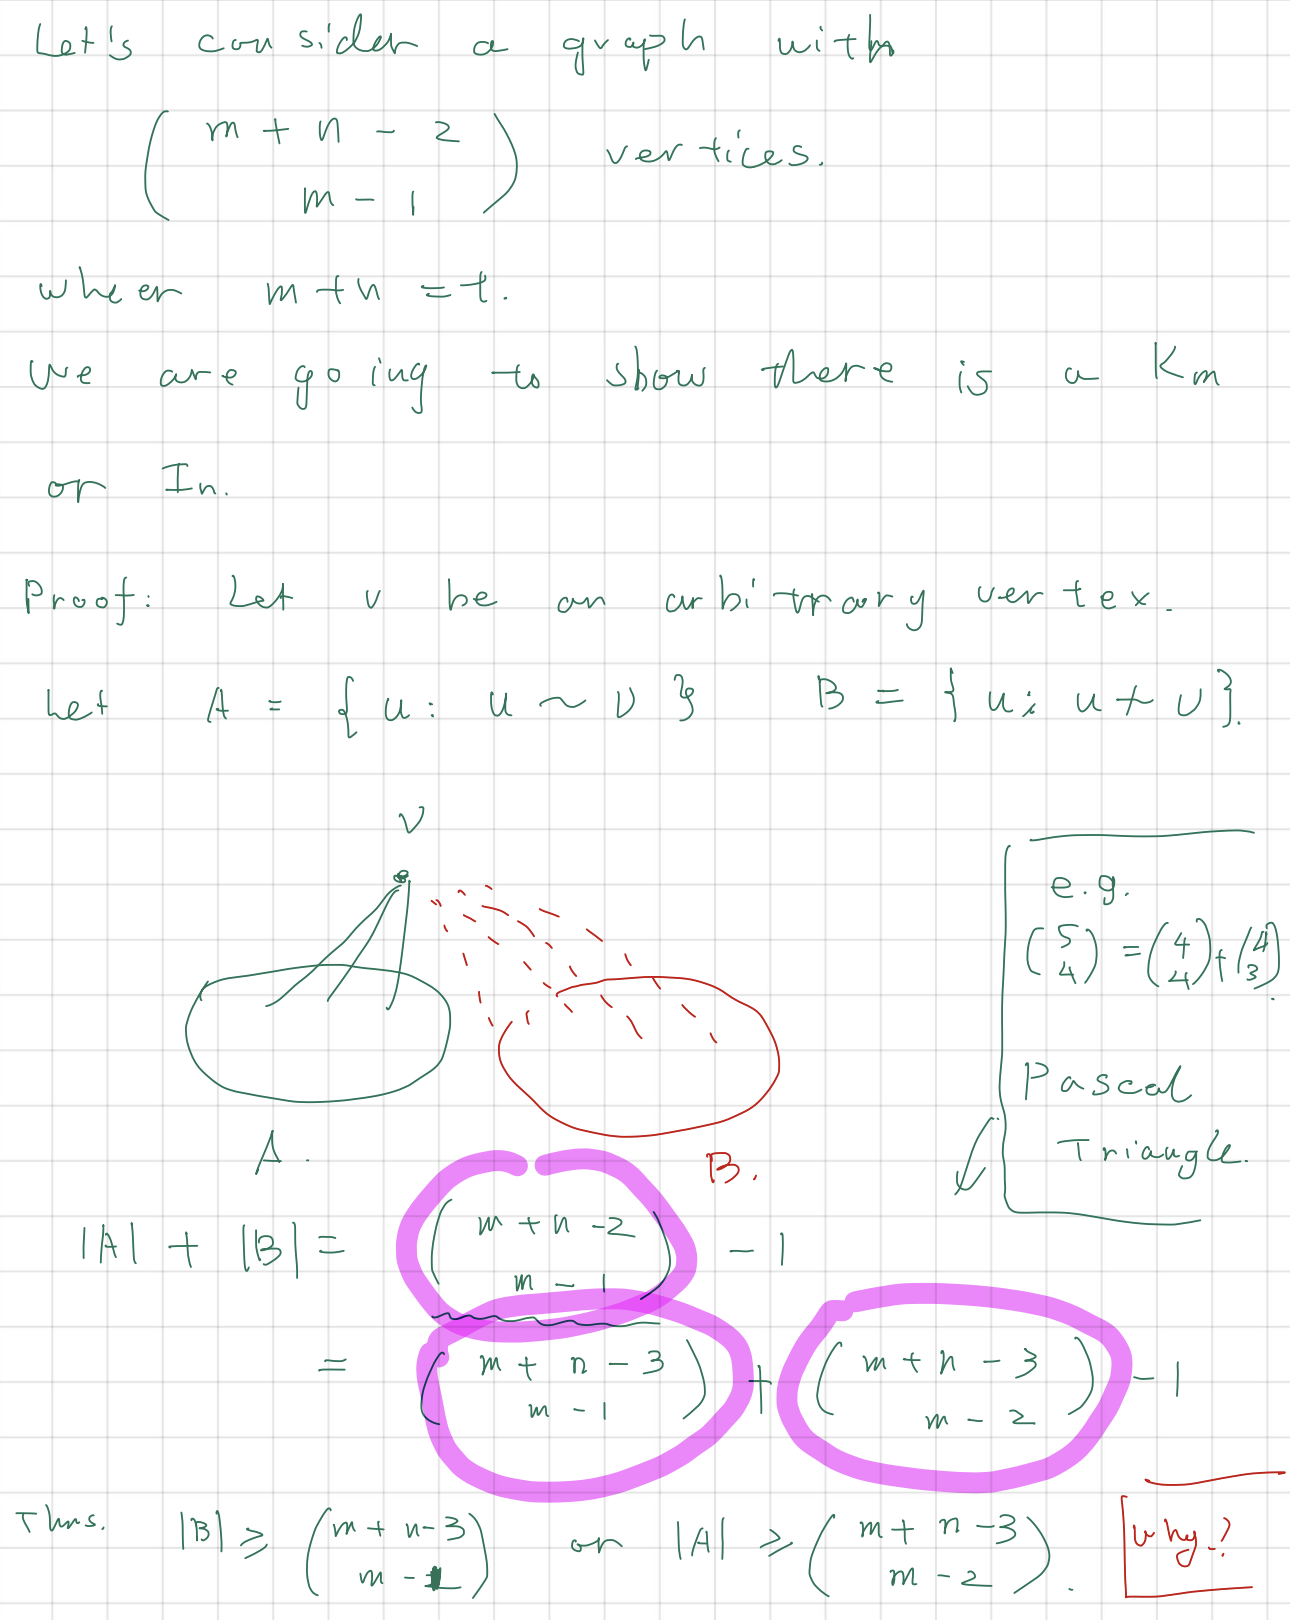 Let's consider a graph with
( m + n - 2
m - 1 ) vertices.
wheer m + n = t.
We are going to show there is a Km
or In.
Proof: Let v be an arbitrary vertex.
Let A = { u : u ~ v } B = { u ; u ≁ v }.
v
e.g.
(5
4) = (4
4) + (4
3).
Pascal
Triangle.
A.
B.
|A| + |B| = ( m + n - 2
m - 1 ) - 1
= ( m + n - 3
m - 1 ) + ( m + n - 3
m - 2 ) - 1
Thus. |B| ⩾ ( m + n - 3
m - 1 ) or |A| ⩾ ( m + n - 3
m - 2 ). Why?